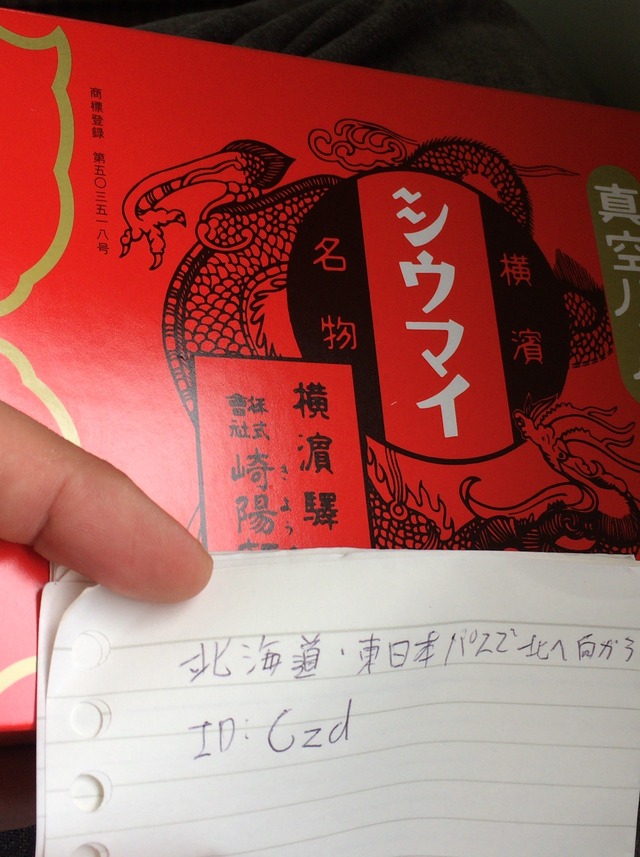 商標登録 第五〇三五一八号
真空パ
横濱
シウマイ
名物
横濱驛
きよう
株式會社
崎陽軒
北海道・東日本パスで北へ向かう
ID: Czd